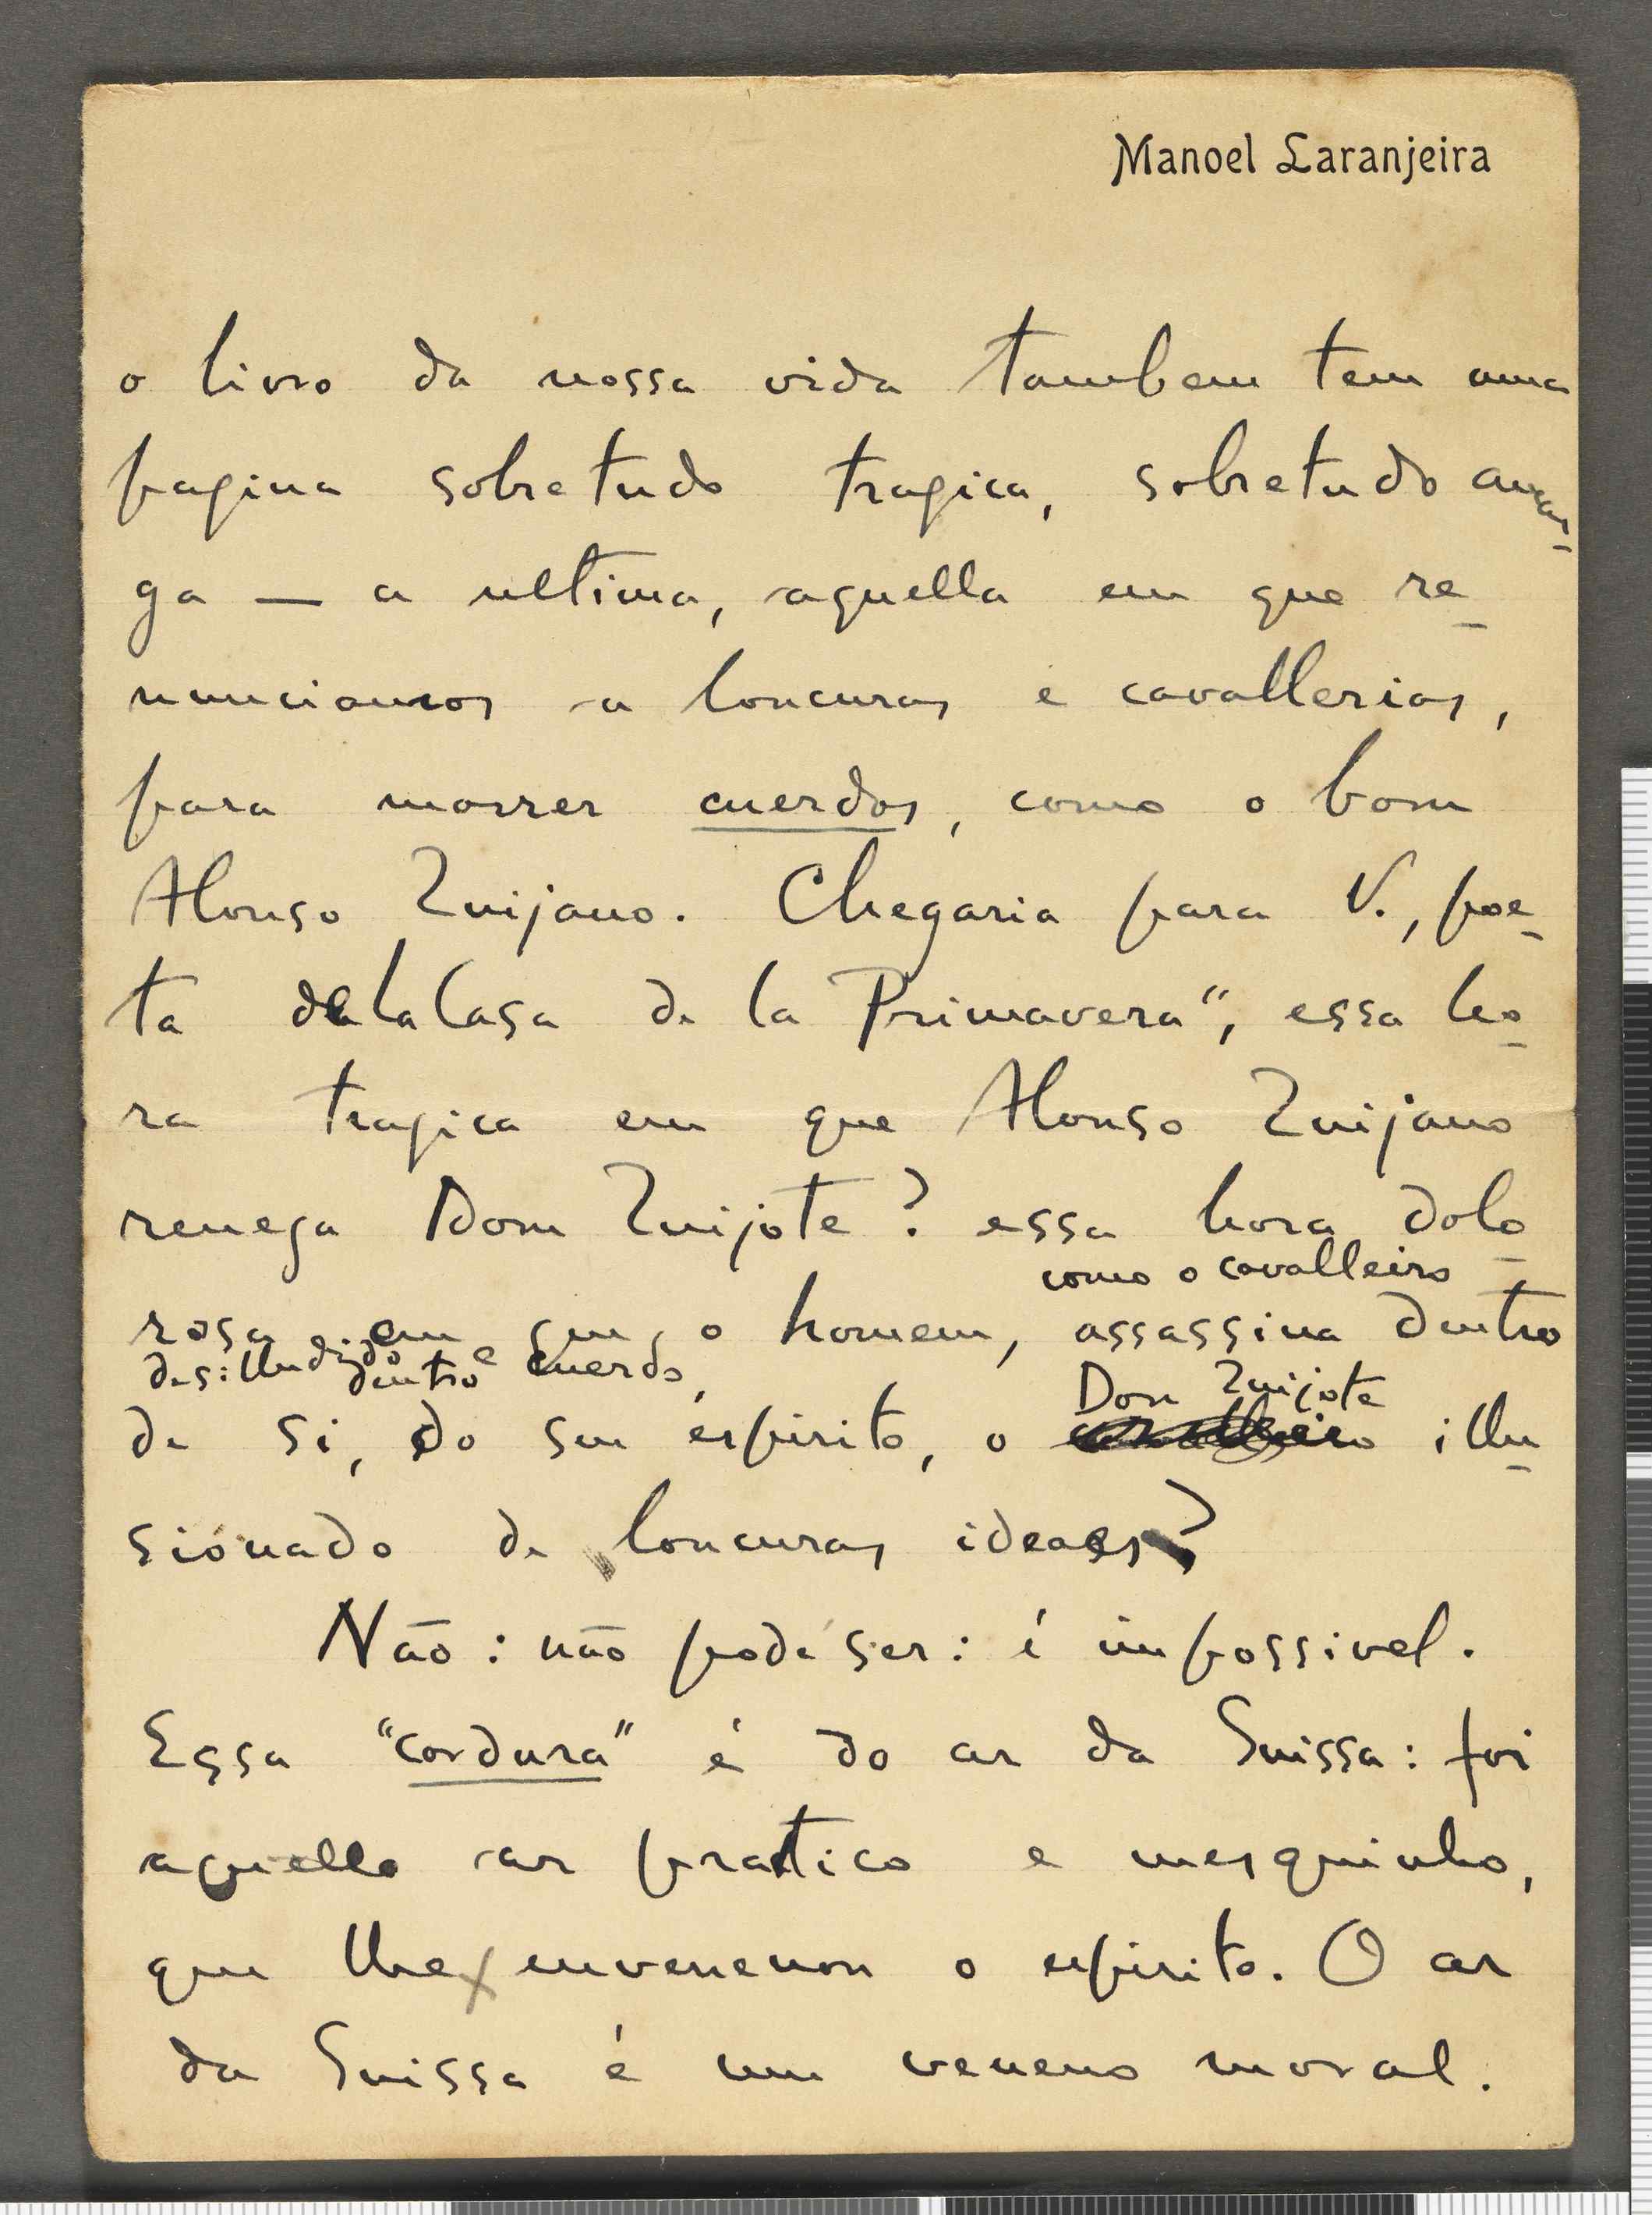 Manoel Laranjeira
o livro da nossa vida tambem tem uma
pagina sobretudo tragica, sobretudo amar-
ga — a ultima, aquella em que re-
nunciamos a loucuras e cavallerias,
para morrer cuerdos, como o bom
Alonso Quijano. Chegaria para V., poe-
ta de la Casa de la Primavera", essa ho-
ra tragica em que Alonso Quijano
renega Dom Quijote? essa hora dolo-
como o cavalleiro
rosa em que o homem, assassina dentro
desilludido e cuerdo,
dentro
de si, do seu espirito, o Don Quijote illu-
sionado de loucuras ideaes?
Não: não pode ser: é impossivel.
Essa "cordura" é do ar da Suissa: foi
aquelle ar pratico e mesquinho,
que lhe envenenou o espirito. O ar
da Suissa é um veneno moral.